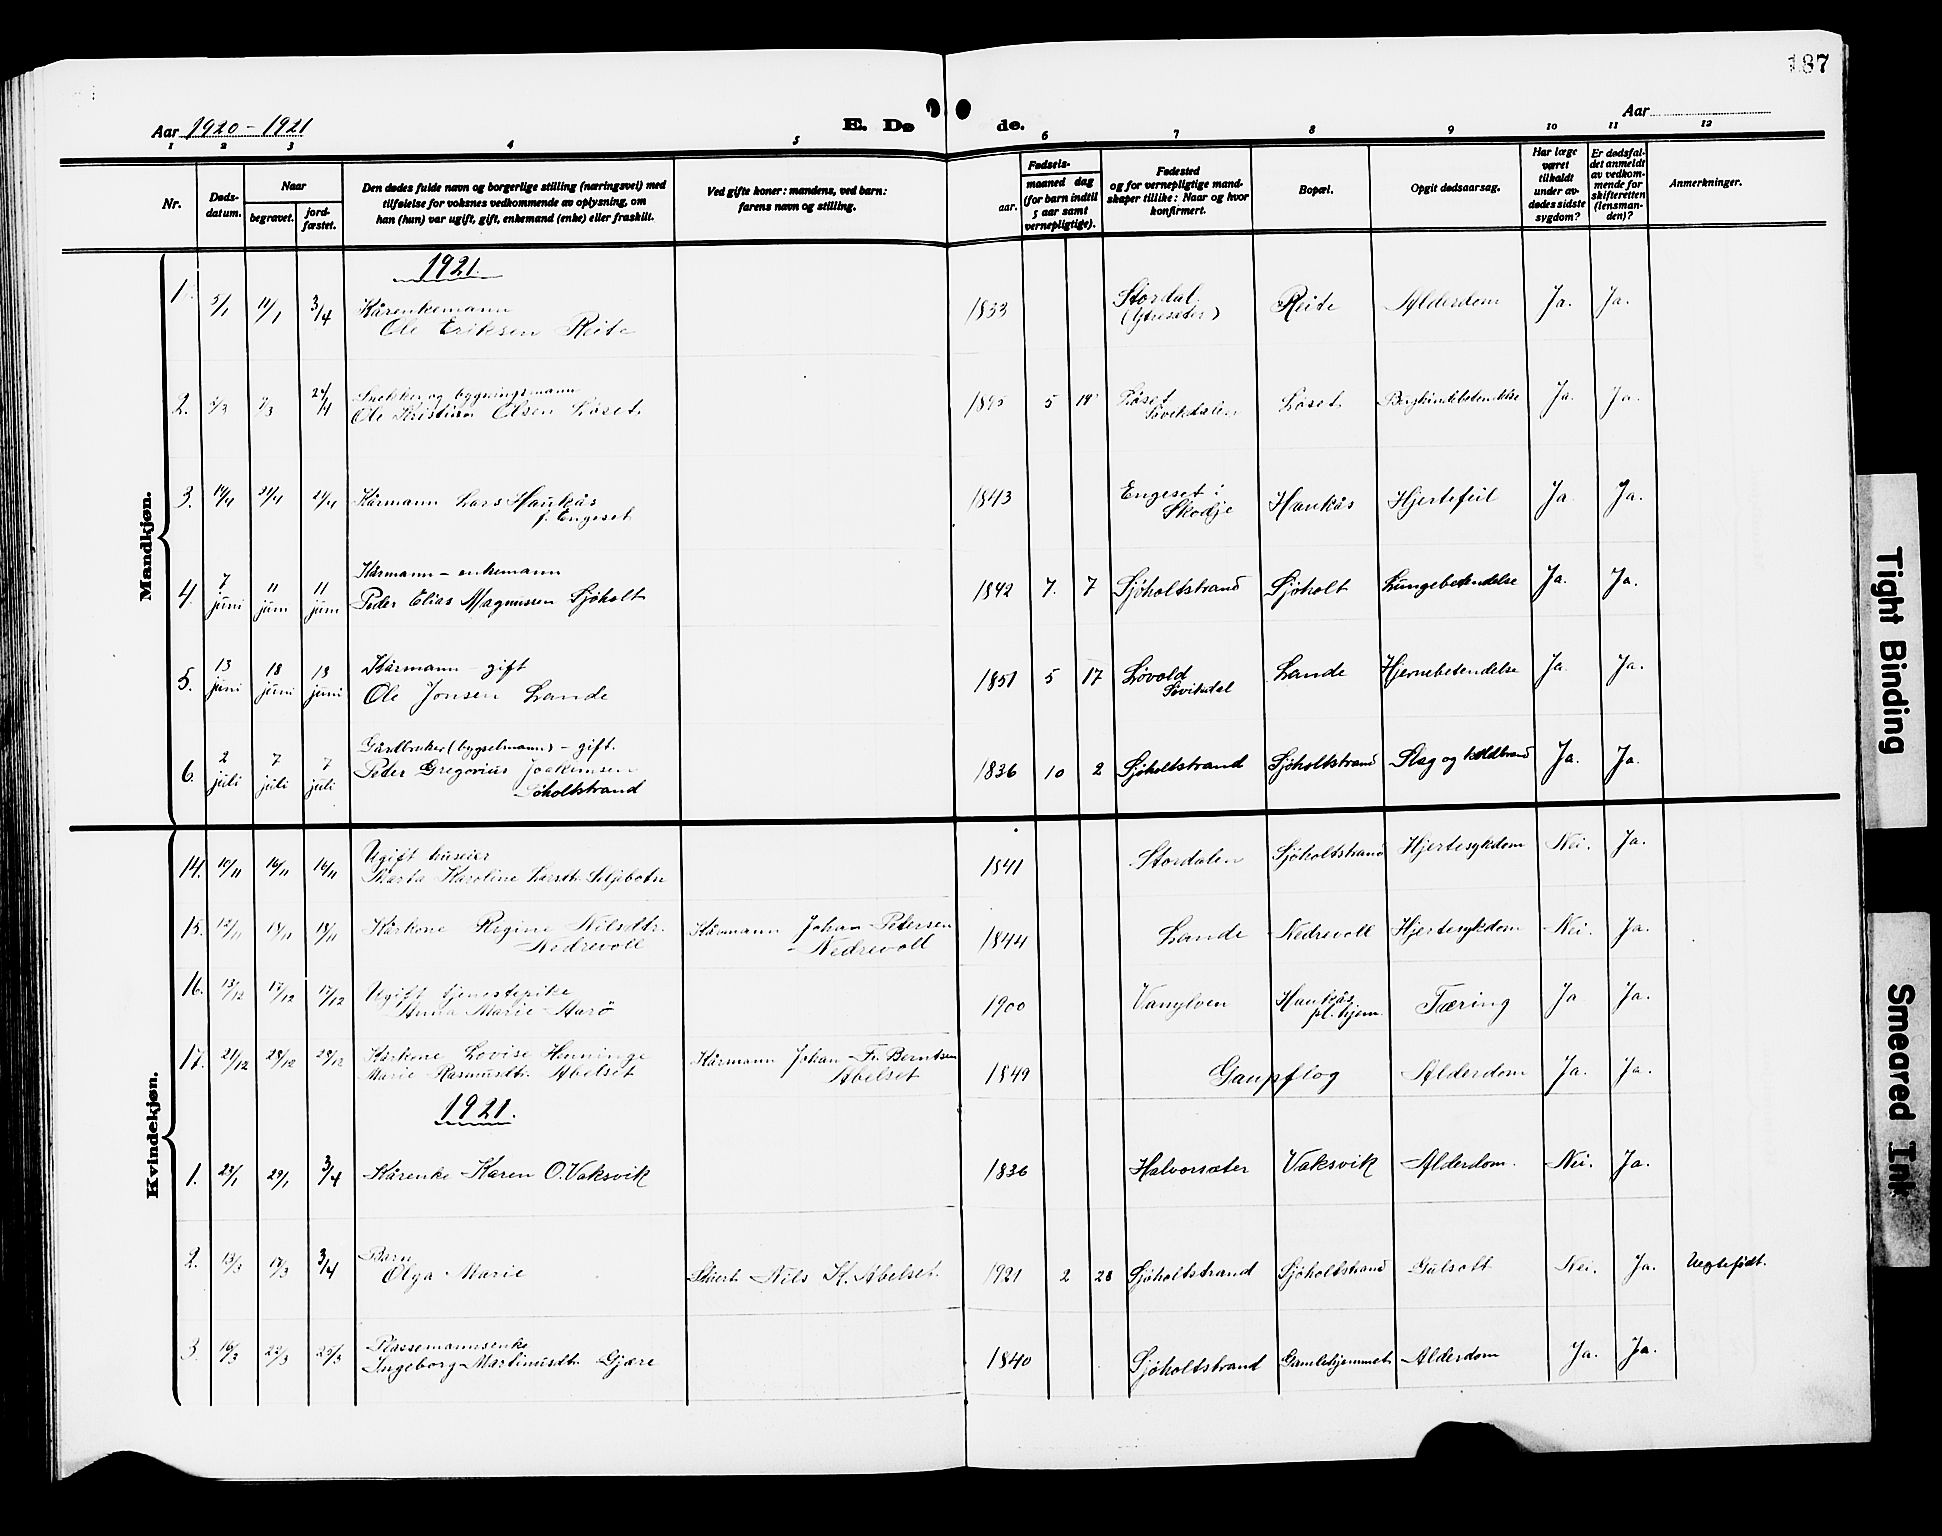 187
Aar 1920-1921
E. Dø de.
Aar
1 2 3 4 5 6 7 8 9 10 11 12
Nr.
Døds-
datum.
Naar
begravet.
jord-
fæstet.
Den dødes fulde navn og borgerlige stilling (næringsvei) med
tilføielse for voksnes vedkommende av oplysning, om
han (hun) var ugift, gift, enkemand (enke) eller fraskilt.
Ved gifte koner: mandens, ved barn:
farens navn og stilling.
Fødsels-
aar.
maaned dag
(for barn indtil
5 aar samt
vernepligtige).
Fødested
og for vernepligtige mand-
skaper tillike: Naar og hvor
konfirmert.
Bopæl.
Opgit dødsaarsag.
Har læge
været
tilkaldt
under av-
dødes sidste
sygdom?
Er dødsfal-
det anmeldt
av vedkom-
mende for
skifteretten
(lensman-
den)?
Anmerkninger.
Mandkjøn.
1921.
1. 5/1 11/1 3/4 Kårenkemann
Ole Eriksen Reite
1833 Stordal Reite Alderdom Ja. Ja.
2. 7/3 Snekker og bygningsmann
Ole Kristian Olsen Løset
1895 5 Løset Løset Ja. Ja.
3. 14/4 21/4 21/4 Kårmann Lars Haukås
f. Engeset
1843 Engeset i
Skodje
Haukås Hjertefeil Ja. Ja.
4. 7 juni 11 juni 11 juni Kårmann - enkemann
Peder Elias Magnussen Sjøholt
1842 7. 7 Sjøholtstrand Sjøholt Lungebetendelse Ja. Ja.
5. 13 juni 18 juni 18 juni Kårmann - gift
Ole Jonsen Lande
1851 5 17 Løvold
Søvikdal
Lande Hjernebetendelse Ja. Ja.
6. 2 juli 7 juli 7 juli Gårdbruker (bygselmann) - gift.
Peder Gregorius Joakimsen
Sjøholtstrand
1836 10 2 Sjøholtstrand Sjøholtstrand Slag og koldbrand Ja. Ja.
Kvindekjøn.
14. 10/11 16/11 16/11 Ugift huseier
Marta Karoline Larsdt. Siljebotn
1841 Stordalen Sjøholtstrand Hjertesykdom Nei. Ja.
15. 12/11 18/11 18/11 Kårkone Regine Nilsdtr.
Nedrevoll
Kårmann Johan Petersen
Nedrevoll
1844 Lande Nedrevoll Hjertesykdom Nei. Ja.
16. 13/12 17/12 17/12 Ugift tjenestepike
Anna Marie Aarö
1900 Vanylven Haukås
pl. hjem. Tæring Ja Ja.
17. 21/12 28/12 28/12 Kårkone Lovise Henninge
Marie Rasmusdt. Abelset
Kårmann Johan Fr. Berntsen
Abelset
1849 Gaupflog Alderdom Ja. Ja.
1921.
1. 22/1 29/1 3/4 Kårenke Karen O. Vaksvik
1836 Halvorsæter Vaksvik Alderdom. Nei. Ja.
2. 13/3 17/3 3/4 Barn
Olga Marie
Nils K. Abelset
1921 2 28 Sjøholtstrand Sjøholtstrand Gulsott Nei. Ja. Uegtefødt.
3. 16/3 22/3 25/3 Plassemannsenke
Ingeborg Martinusdt. Gjære
1840 Sjøholtstrand Gamlehjemmet Alderdom Ja. Ja.
Tight Binding
Smeared Ink